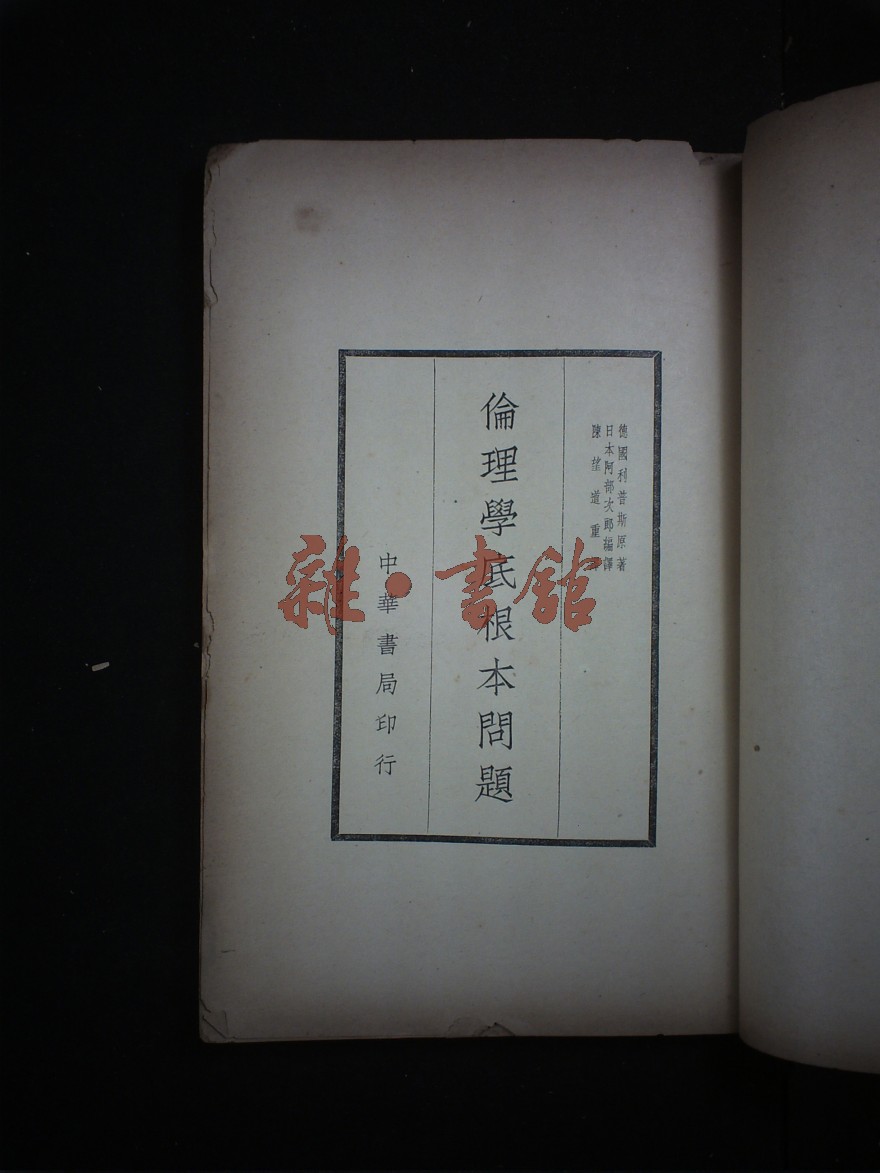 德國利普斯原著
日本阿部次郎編譯
陳望道重
倫理學底根本問題
中華書局印行
雜·書館